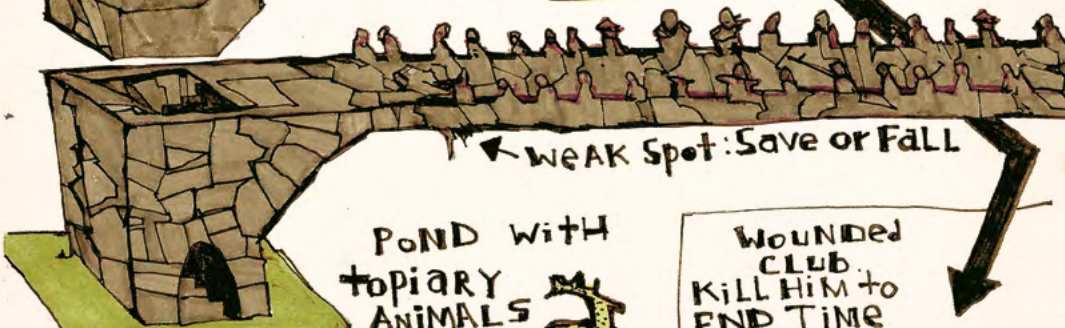 WEAK Spot: Save or FaLL
PoND WitH
topiary
ANiMALS
WouNDed
CLub.
KiLL HiM to
END TiMe